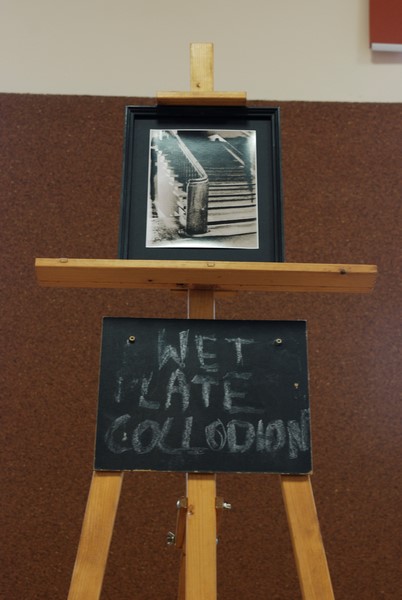 WET
PLATE
COLLODION